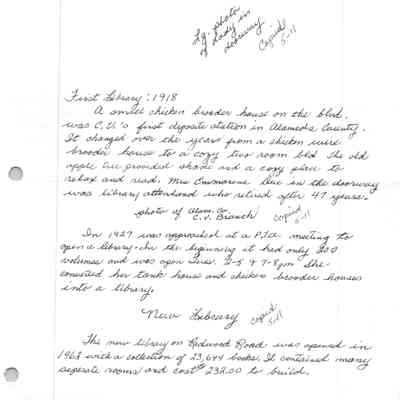 Lg. photo
of Lady in
doorway
Copied
5-11
First Library: 1918
A small chicken brooder house on the blvd.
was C.V.'s first deposit station in Alameda County.
It changed over the years from a chicken wire
brooder house to a cozy two room bld. The old
apple tree provided shade and a cozy place to
relax and read. Mrs in the doorway
was library attendant who retired after 47 years.
photo of Alam. Co.
C.V. Branch
copied
5-11
In 1927 was approached at a PTA meeting to
open a library. In the beginning it had only 200
volumes and was open 2-5 & 7-8 pm She
converted her tank house and chicken brooder houses
into a library.
New Library
copied
5-11
The new library on Redwood Road was opened in
1962 with a collection of 23,644 books. It contained many
seperate rooms and cost $ 232.00 to build.